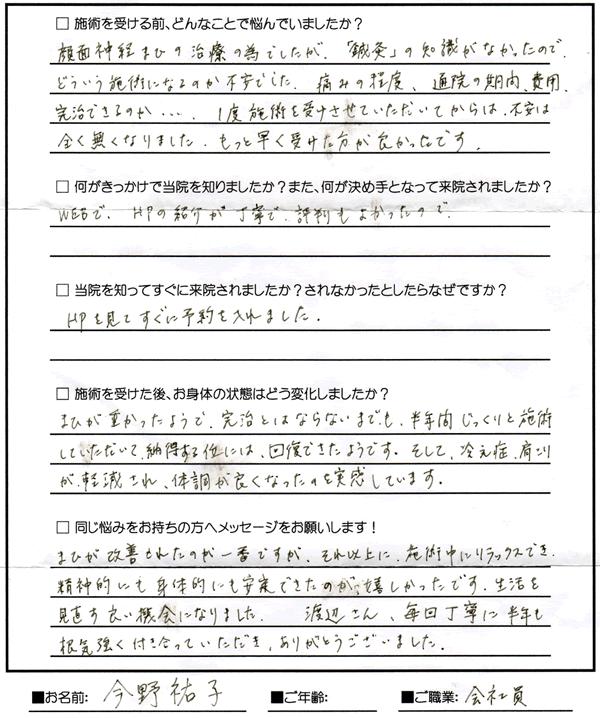 □ 施術を受ける前、どんなことで悩んでいましたか？
顔面神経まひの治療の為でしたが、「鍼灸」の知識がなかったので、
どういう施術になるのか不安でした。痛みの程度、通院の期間、費用、
完治できるのか・・・。1度施術を受けさせていただいてからは、不安は
全く無くなりました。もっと早く受けた方が良かったです。
□ 何がきっかけで当院を知りましたか？また、何が決め手となって来院されましたか？
WEBで。HPの紹介が丁寧で、評判もよかったので。
□ 当院を知ってすぐに来院されましたか？されなかったとしたらなぜですか？
HPを見てすぐに予約を入れました。
□ 施術を受けた後、お身体の状態はどう変化しましたか？
まひが重かったようで、完治とはならないまでも、半年間じっくりと施術
していただいて、納得する位には、回復できたようです。そして、冷え症、肩こり
が軽減され、体調が良くなったのを実感しています。
□ 同じ悩みをお持ちの方へメッセージをお願いします！
まひが改善されたのが一番ですが、それ以上に、施術中にリラックスでき、
精神的にも身体的にも安定できたのが、嬉しかったです。生活を
見直す良い機会になりました。 渡辺さん、毎回丁寧に半年も
根気強く付き合っていただき、ありがとうございました。
■お名前: 今野祐子 ■ご年齢: ■ご職業: 会社員